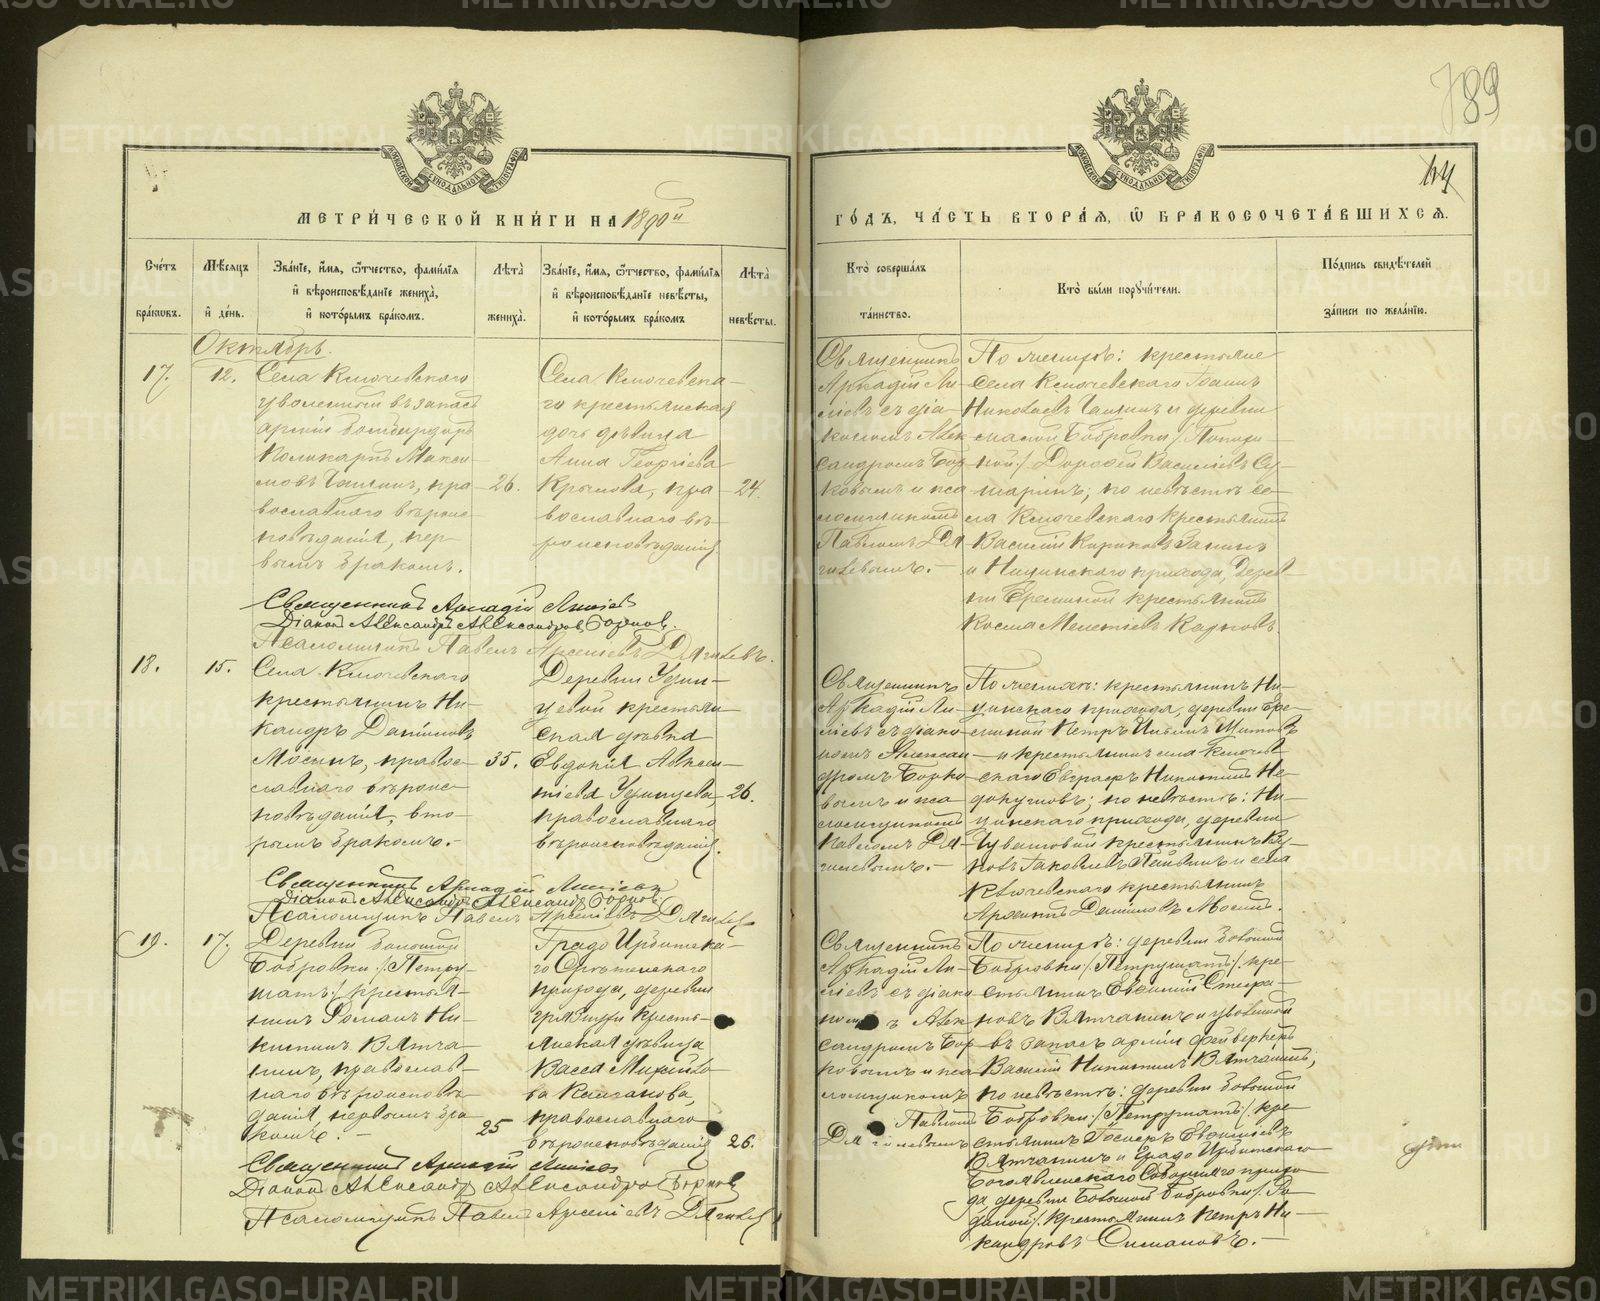 789
44
МЕТРИ́ЧЕСКОЙ КНИ́ГИ НА 1890й
ГО́ДЪ, ЧА́СТЬ ВТОРА́Я, Ѡ҆ БРАКОСОЧЕТА́ВШИХСЯ.
Сче́тъ бра́кѡвъ.
Мѣ́сяцъ и҆ де́нь.
Зва́нїе, и҆́мя, ѻ҆́тчество, фамѝлїя и҆ вѣроисповѣ́данїе жениха̀, и҆ кото́рымъ бра́комъ.
Лѣта̀ жениха̀.
Зва́нїе, и҆́мя, ѻ҆́тчество, фамѝлїя и҆ вѣроисповѣ́данїе невѣ́сты, и҆ кото́рымъ бра́комъ
Лѣта̀ невѣ́сты.
Кто̀ соверша́лъ та́инство.
Кто̀ бы́ли порꙋчи́тели.
По́дпись свидѣ́телей за́писи по жела́нїю.
Октябрь.
17.
12.
Села Ключевскаго
уволенный въ запасъ
армiи бомбардиръ
Поликарпъ Макси-
мовъ Чапинъ, пра-
вославнаго вѣроис-
повѣданiя, пер-
вымъ бракомъ.
26.
Села Ключевска-
го крестьянская
дочь дѣвица
Анна Георгiева
Крымова, пра-
вославнаго вѣ-
роисповѣданiя
24.
Священникъ
Аркадiй Ли-
сiевъ съ дiа-
кономъ Алек
сандромъ Бор
ковымъ и пса
ломщикомъ
Павломъ Дя
гилевымъ.-
По женихѣ: крестьяне
села Ключевскаго Iоаннъ
Николаевъ Чапинъ и деревни
малой Бобровки /
ной / Дорофей Васильевъ Су-
шаринъ; по невѣстѣ се-
ла Ключевскаго крестьянинъ
Василiй Кириковъ
и Ницинскаго прихода, дерев-
ни Ереминой крестьянинъ
Косма Мелентьевъ Карповъ.
Священникъ Аркадiй Лисiевъ
Дiаконъ Александръ Александровъ Борковъ.
Псаломщикъ Павелъ Арсенiевъ Дягилевъ.
18.
15.
Села Ключевскаго
крестьянинъ Ни-
кандръ Данiиловъ
Мосинъ, правос-
лавнаго вѣроис-
повѣданiя, вто-
рымъ бракомъ.-
35.
Деревни Удин-
цевой крестьян
ская дѣвица
Евдокiя Авксен-
тiева Удинцева,
православнаго
вѣроисповѣданiя.
26.
Священникъ
Аркадiй Ли-
сiевъ съ дiако-
номъ Алексан
дромъ Борко-
вымъ и пса
ломщикомъ
Павломъ Дя-
гилевымъ.-
По женихѣ: крестьянинъ Ни-
цинскаго прихода, деревни Ере-
миной Петръ Ильинъ Митовъ
и крестьянинъ села Ключев
скаго Евграфъ Никитинъ Не-
докушовъ; по невѣстѣ: Ни-
цинскаго прихода, деревни
крестьянинъ Ву-
колъ Iаковлевъ и села
Ключевскаго крестьянинъ
Даниловъ Мосинъ.
Священникъ Аркадiй Лисiевъ
Дiаконъ Александръ Александровъ Борковъ
Псаломщикъ Павелъ Арсенiевъ Дягилевъ
19.
17.
Деревни большой
Бобровки / Петру-
шатъ / крестья-
нинъ Романъ Ни-
китинъ Вятча-
нинъ, православ-
наго вѣроисповѣ-
данiя, первымъ бра
комъ.-
25
Градо Ирбитска-
го Срѣтенскаго
прихода, деревни
крестья-
янская дѣвица
Васса Михайло
ва Калганова,
православнаго
вѣроисповѣданiя
26.
Священникъ
Аркадiй Ли-
сiевъ съ дiако
номъ Алек
сандромъ Бор
ковымъ и пса
ломщикомъ
Павломъ
Дягилевымъ
По женихѣ: деревни большой
Бобровки / Петрушатъ / кре-
стьянинъ Евфимiй Стефа-
новъ Вятчанинъ и уволенный
въ запасъ армiи фейверкеръ
Василiй Никитинъ Вятчанинъ;
по невѣстѣ: деревни большой
Бобровки / Петрушатъ / кре-
стьянинъ Евфимiевъ
Вятчанинъ и Градо Ирбитскаго
Богоявленскаго Соборнаго прихо
да деревни Большой Бобровки /
/ крестьянинъ Петръ Ни-
кандровъ Симановъ.-
Священникъ Аркадiй Лисiевъ
Дiаконъ Александръ Александровъ Борковъ
Псаломщикъ Павелъ Арсенiевъ Дягилевъ
METRIKI.GASO-URAL.RU